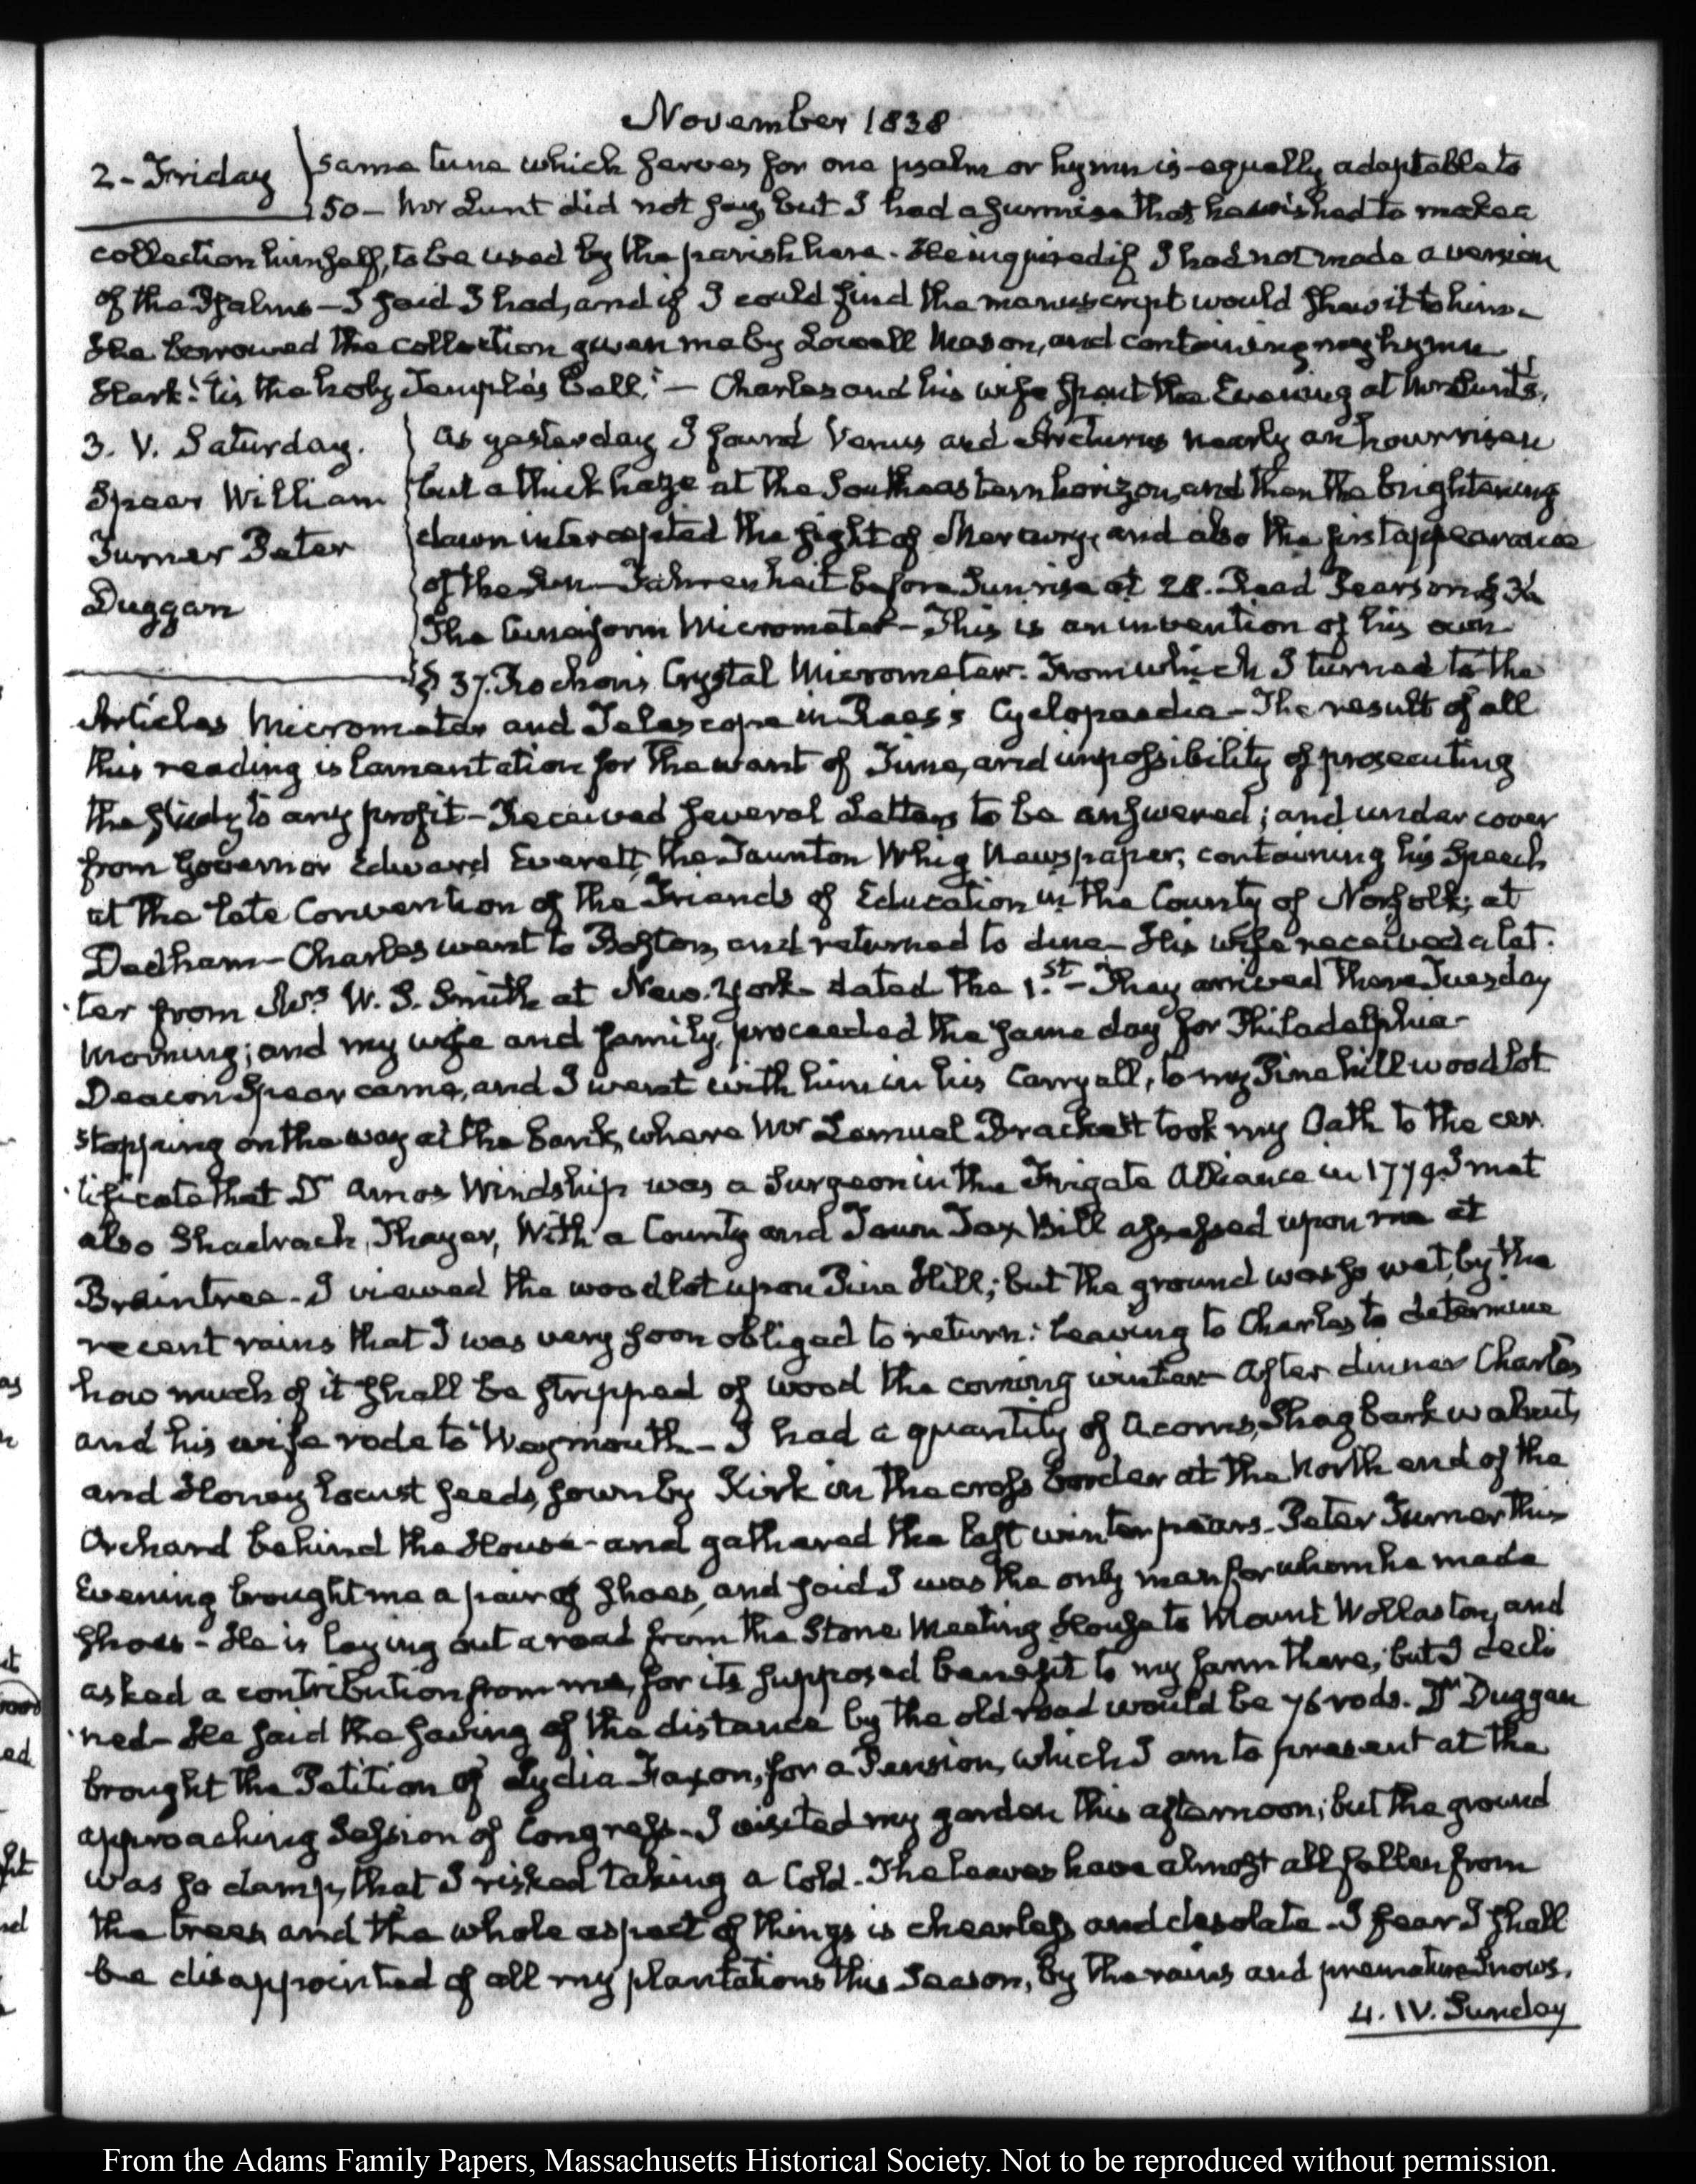 November 1838
2 - Friday
same tune which serves for one psalm or hymn is equally adaptable to
150 - Mr Lunt did not say, but I had a surmise that he wished to make a
collection himself, to be used by the parish here - He inquired if I had not made a version
of the Psalms - I said I had, and if I could find the manuscript would shew it to him -
He borrowed the collection given me by Lowell Mason, and containing my hymn
Hark! 'tis the holy Temple's bell." - Charles and his wife spent the Evening at Mr Lunt's.
3. V. Saturday.
Spear William
Turner Peter
Duggan
As yesterday I found Venus and Arcturus nearly an hour risen
but a thick haze at the Southeastern horizon, and then the brightening
dawn intercepted the sight of Mercury, and also the first appearance
of the Sun - Fahrenheit before Sunrise at 28. Read Pearson § 36
The Cuneiform Micrometer - This is an invention of his own
§ 37. Rochon's Crystal Micrometer. From which I turned to the
Articles Micrometer and Telescope in Rees's Cyclopaedia - The result of all
this reading is lamentation for the want of Time, and impossibility of prosecuting
the study to any profit - Received several Letters to be answered; and under cover
from Governor Edward Everett, the Taunton Whig Newspaper, containing his Speech
at the late Convention of the Friends of Education in the County of Norfolk, at
Dedham - Charles went to Boston, and returned to dine - His wife received a let-
-ter from Mrs W. S. Smith at New-York dated the 1.st - They arrived there Tuesday
Morning; and my wife and family, proceeded the same day for Philadelphia -
Deacon Spear came, and I went with him in his Carryall, to my Pine hill wood lot
stopping on the way at the bank, where Mr Lemuel Brackett took my Oath to the cer
tificate that Dr Amos Windship was a Surgeon in the Frigate Alliance in 1779. I met
also Shadrach Thayer, with a County and Town Tax Bill assessed upon me at
Braintree - I viewed the wood lot upon Pine Hill; but the ground was so wet, by the
recent rains that I was very soon obliged to return: leaving to Charles to determine
how much of it shall be stripped of wood the coming winter - After dinner Charles
and his wife rode to Weymouth - I had a quantity of Acorns, Shag bark walnuts,
and Honey locust seeds, sown by Kirk in the cross border at the North end of the
Orchard behind the House - and gathered the last winter pears - Peter Turner this
Evening brought me a pair of shoes, and said I was the only man for whom he made
shoes - He is laying out a road from the Stone Meeting House to Mount Wollaston, and
asked a contribution from me, for its supposed benefit to my farm there; but I decli
ned - He said the saving of the distance by the old road would be 76 rods. Dr Duggan
brought the Petition of Lydia Faxon, for a Pension, which I am to present at the
approaching Session of Congress - I visited my garden this afternoon; but the ground
was so damp, that I risked taking a Cold. The leaves have almost all fallen from
the trees and the whole aspect of things is cheerless and desolate - I fear I shall
be disappointed of all my plantations this Season, by the rains and premature Snows.
4. IV. Sunday
From the Adams Family Papers, Massachusetts Historical Society. Not to be reproduced without permission.